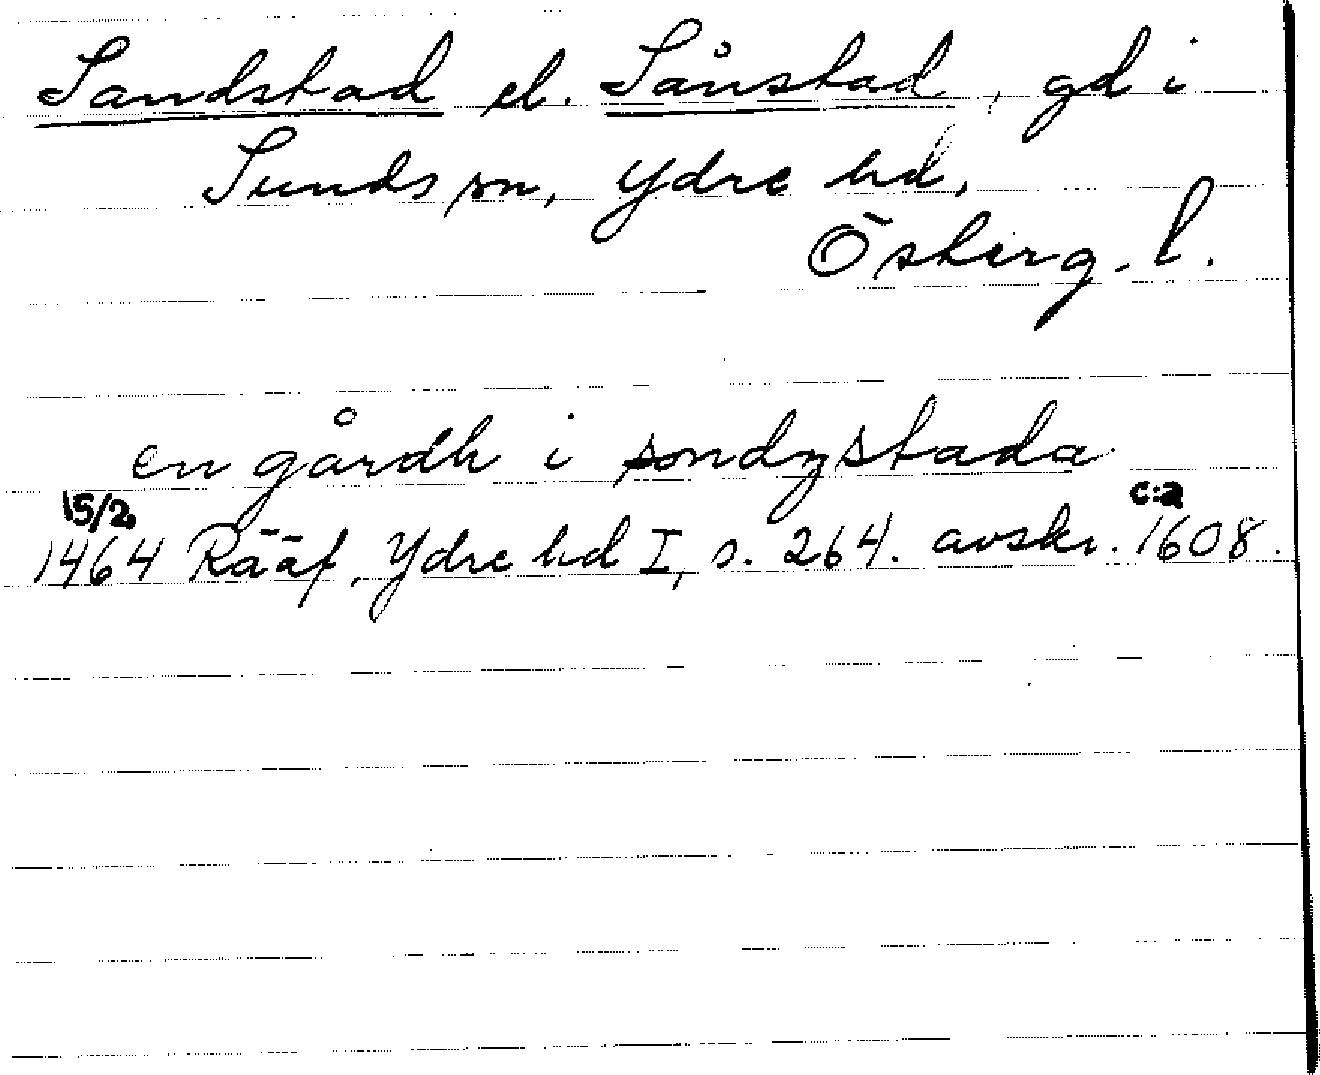 Sandstad el. Sånstad, gd i
Sunds sn, Ydre hd,
Östergö. l.
en gårdh i sondzstada
15/2 c:a
1464 Rääf, Ydre hd I, s. 264. avskr. 1608.